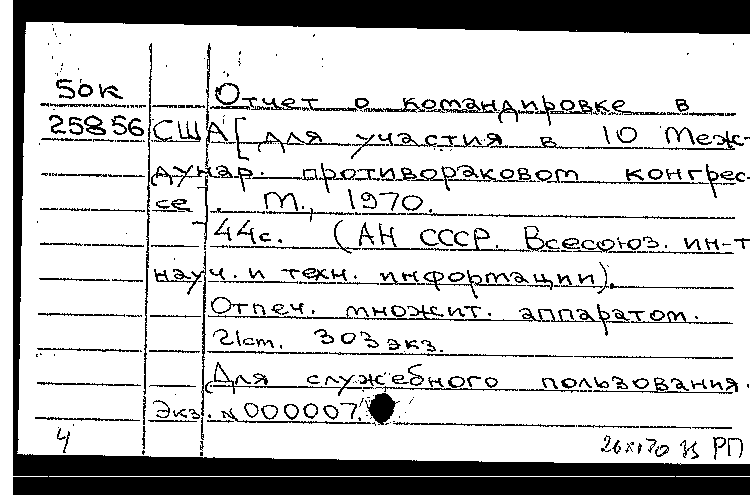 50к Отчет о командировке в
25856 США [для участия в 10 Меж-
дунар. противораковом конгрес-
се]. М., 1970.
44с. (АН СССР. Всесоюз. ин-т
науч. и техн. информации).
Отпеч. множит. аппаратом.
21см. 303 экз.
Для служебного пользования.
Экз. N 000007.
4 РП